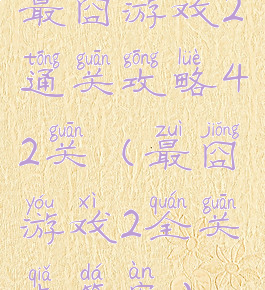 最囧游戏2
tōng guān gōng lüè
通关攻略4
guān zuì jiǒng
2关（最囧
yóu xì quán guān
游戏2全关
qiǎ dá àn